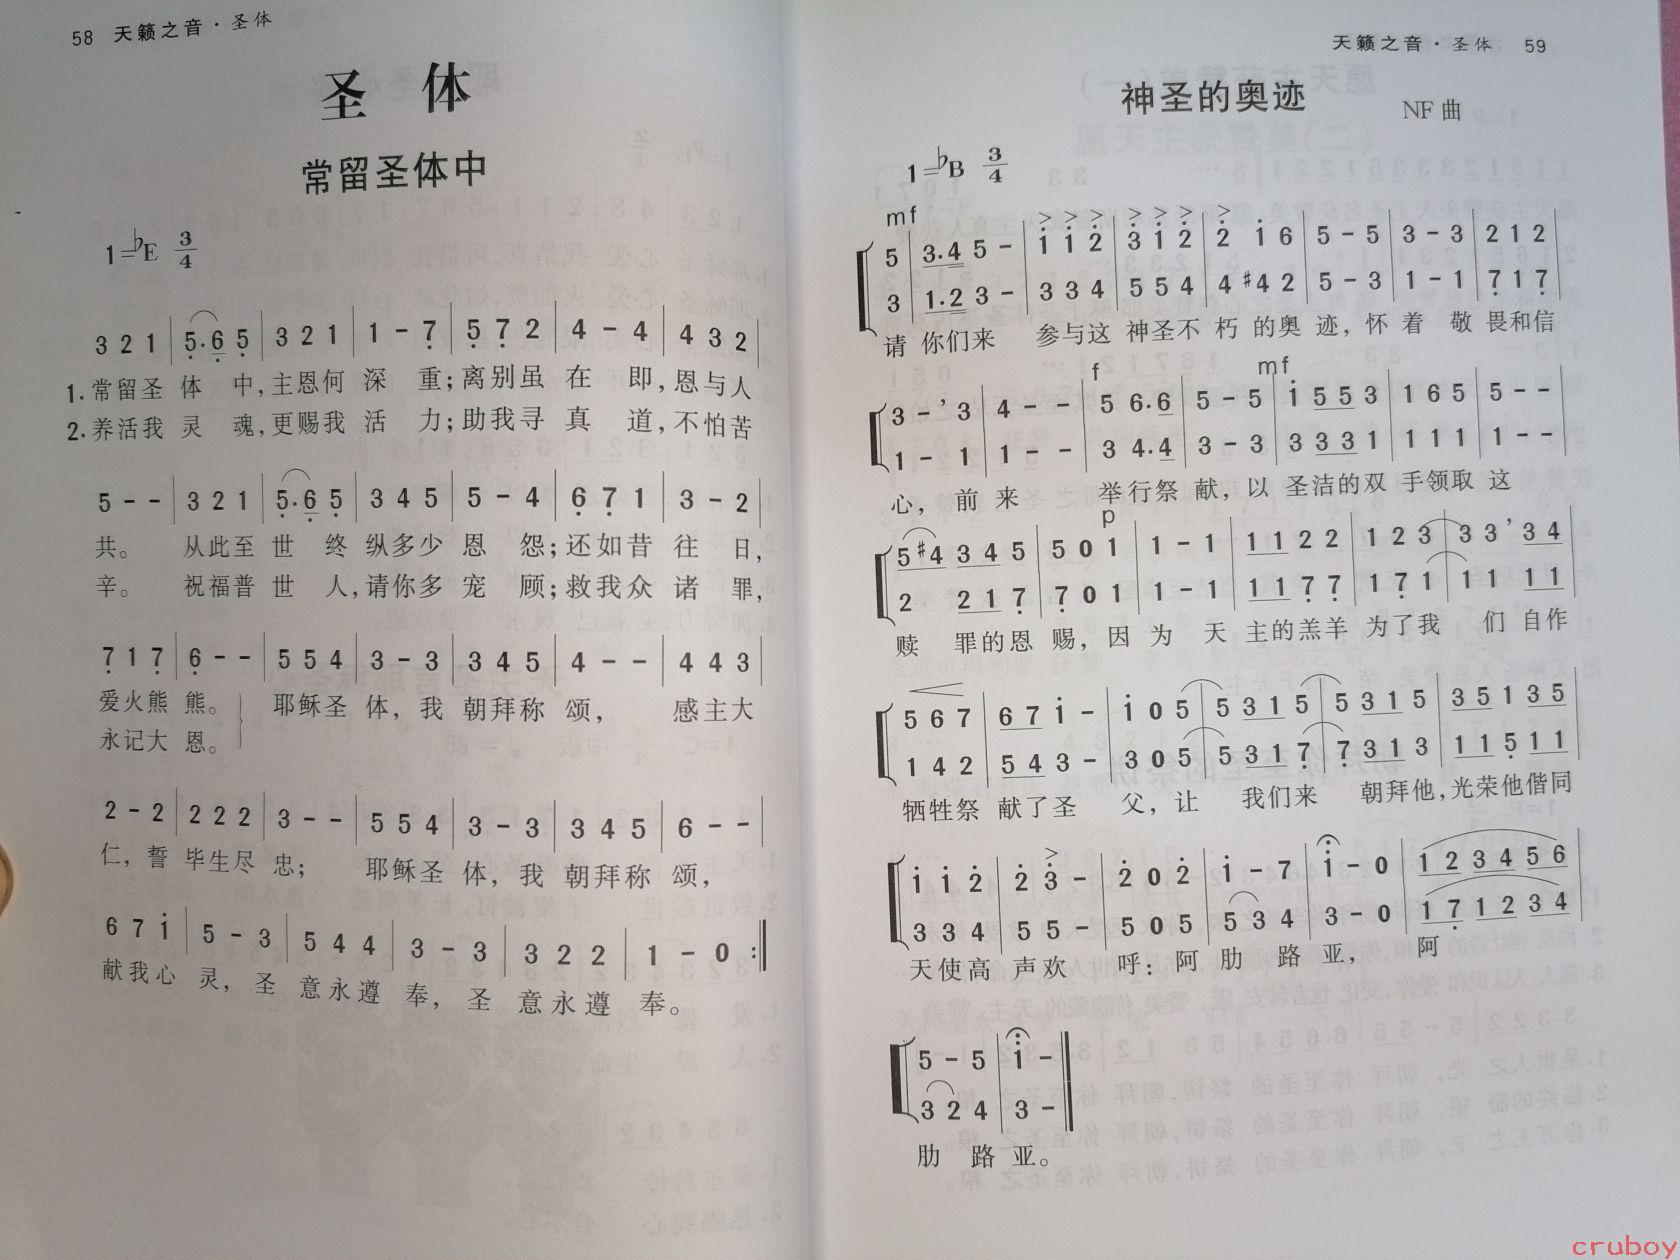 58 天籁之音·圣体
圣 体
常留圣体中
1=♭E 3/4
3 2 1 | 5·6 5 | 3 2 1 | 1 - 7 | 5 7 2 | 4 - 4 | 4 3 2 |
1.常留圣 体 中,主恩何 深 重;离别虽 在 即,恩与人
2.养活我 灵 魂,更赐我 活 力;助我寻 真 道,不怕苦
5 - - | 3 2 1 | 5·6 5 | 3 4 5 | 5 - 4 | 6 7 1 | 3 - 2 |
共。 从此至 世 终 纵多少 恩 怨;还如昔 往 日,
辛。 祝福普 世 人,请你多 宠 顾;救我众 诸 罪,
7 1 7 | 6 - - | 5 5 4 | 3 - 3 | 3 4 5 | 4 - - | 4 4 3 |
爱火熊 熊。 耶稣圣 体,我 朝拜称 颂, 感主大
永记大 恩。
2 - 2 | 2 2 2 | 3 - - | 5 5 4 | 3 - 3 | 3 4 5 | 6 - - |
仁,誓 毕生尽 忠; 耶稣圣 体,我 朝拜称 颂,
6 7 i | 5 - 3 | 5 4 4 | 3 - 3 | 3 2 2 | 1 - 0 :‖
献我心 灵,圣 意永遵 奉,圣 意永遵 奉。
天籁之音·圣体 59
神圣的奥迹
NF 曲
1=♭B 3/4
mf
5 | 3·4 5 - | i i 2 | 3 i 2 | 2 i 6 | 5 - 5 | 3 - 3 | 2 1 2 |
3 | 1·2 3 - | 3 3 4 | 5 5 4 | 4 #4 2 | 5 - 3 | 1 - 1 | 7 1 7 |
请 你们来 参与这 神圣不 朽 的奥 迹,怀 着 敬 畏和信
f mf
3 - ’ 3 | 4 - - | 5 6·6 | 5 - 5 | i 5 5 3 | 1 6 5 | 5 - - |
1 - 1 | 1 - - | 3 4·4 | 3 - 3 | 3 3 3 1 | 1 1 1 | 1 - - |
心,前 来 举行祭 献,以 圣洁的双 手领取 这
p
5 #4 3 4 5 | 5 0 1 | 1 - 1 | 1 1 2 2 | 1 2 3 | 3 3 ’ 3 4 |
2 2 1 7 | 7 0 1 | 1 - 1 | 1 1 7 7 | 1 7 1 | 1 1 1 1 |
赎 罪的恩 赐,因 为 天 主的羔羊 为了我 们 自作
5 6 7 | 6 7 i - | i 0 5 | 5 3 1 5 | 5 3 1 5 | 3 5 1 3 5 |
1 4 2 | 5 4 3 - | 3 0 5 | 5 3 1 7 | 7 3 1 3 | 1 1 5 1 1 |
牺牲祭 献了圣 父,让 我们来 朝拜他,光荣他偕同
i i 2 | 2 3 - | 2 0 2 | i - 7 | i - 0 | 1 2 3 4 5 6 |
3 3 4 | 5 5 - | 5 0 5 | 5 3 4 | 3 - 0 | 1 7 1 2 3 4 |
天使高 声欢 呼:阿 肋 路 亚, 阿
5 - 5 | i - ‖
3 2 4 | 3 - ‖
肋 路 亚。
cruboy